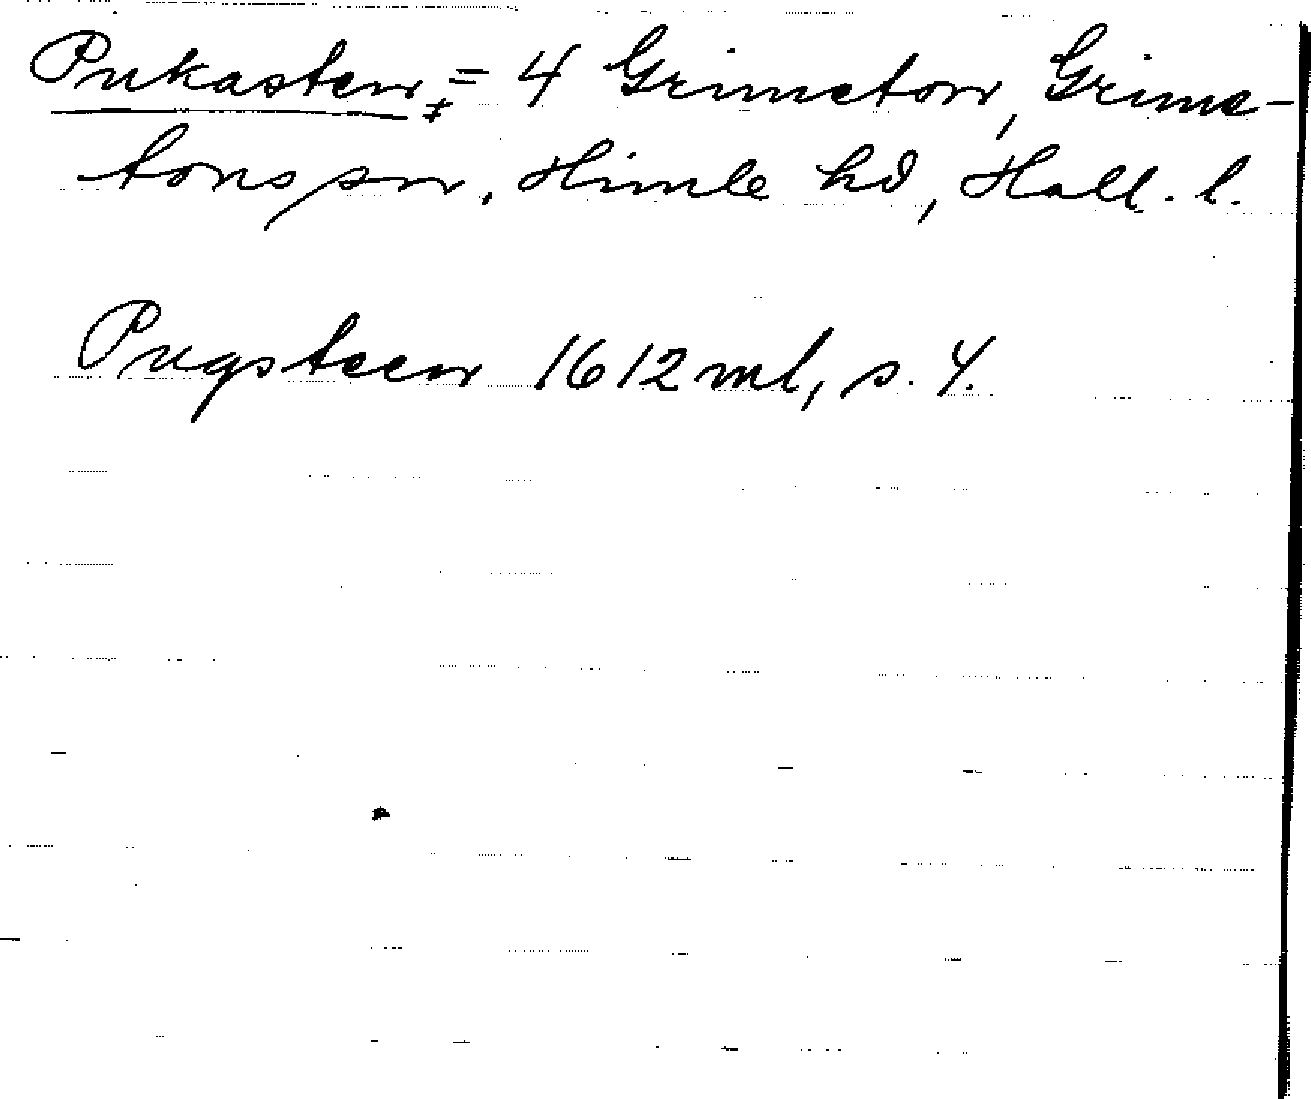 Pukasten, ‡ = 4 Grimeton, Grime-
tons sn, Himle hd, Hall. l.
Pugsteen 1612 ml, s. 4.